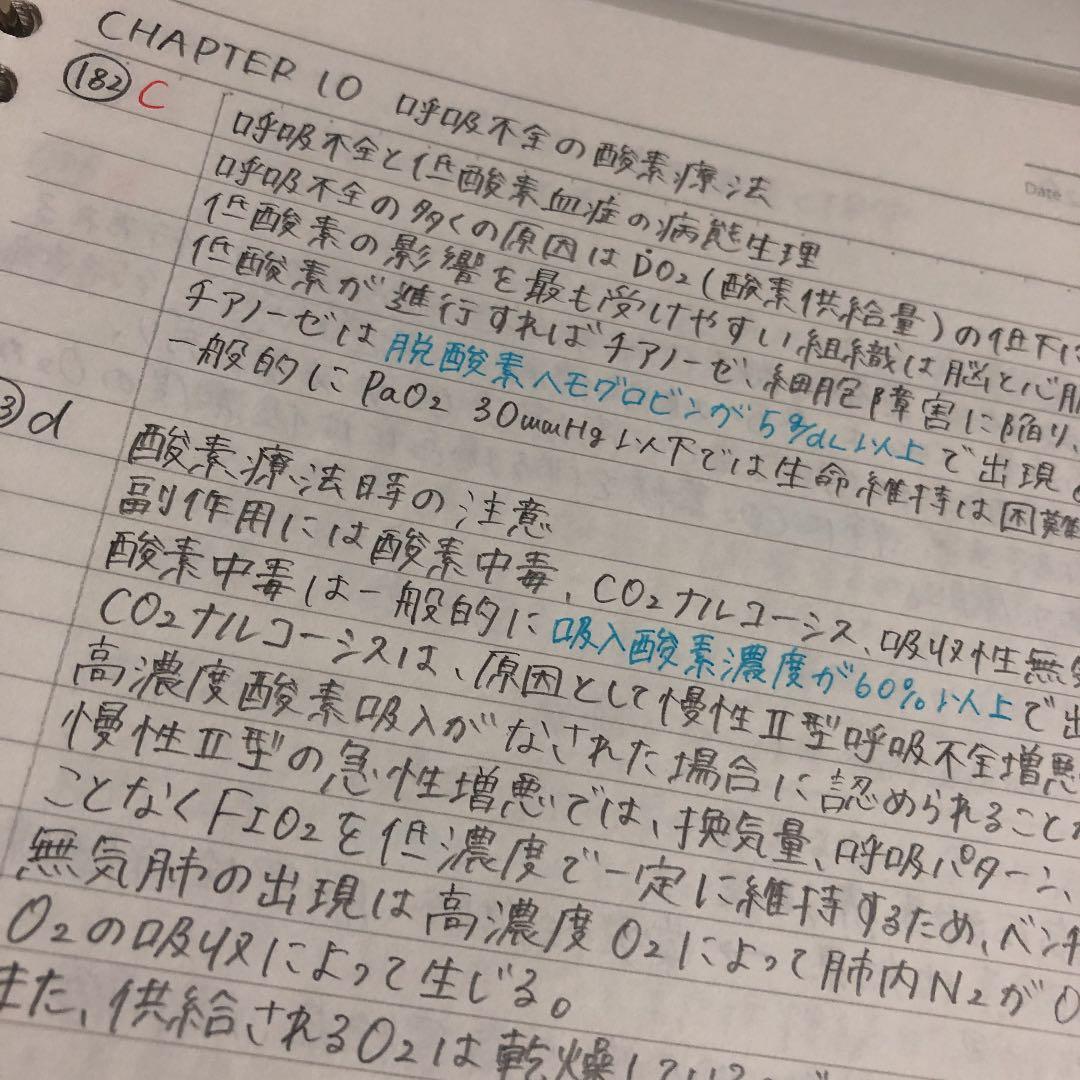 CHAPTER 10 呼吸不全の酸素療法
Date
182 C
呼吸不全と低酸素血症の病態生理
呼吸不全の多くの原因はḊO₂(酸素供給量)の低下に
低酸素の影響を最も受けやすい組織は脳と心
低酸素が進行すればチアノーゼ、細胞障害に陥り、
チアノーゼは脱酸素ヘモグロビンが5g/dL以上で出現
一般的にPaO₂ 30mmHg以下では生命維持は困難
3 d
酸素療法時の注意
副作用には酸素中毒、CO₂ナルコーシス、吸収性無
酸素中毒は一般的に吸入酸素濃度が60%以上で出
CO₂ナルコーシスは、原因として慢性Ⅱ型呼吸不全増悪
高濃度酸素吸入がなされた場合に認められること
慢性Ⅱ型の急性増悪では、換気量、呼吸パターン、
ことなくFIO₂を低濃度で一定に維持するため、ベン
無気肺の出現は高濃度O₂によって肺内N₂がO
O₂の吸収によって生じる。
また、供給されるO₂は乾燥して